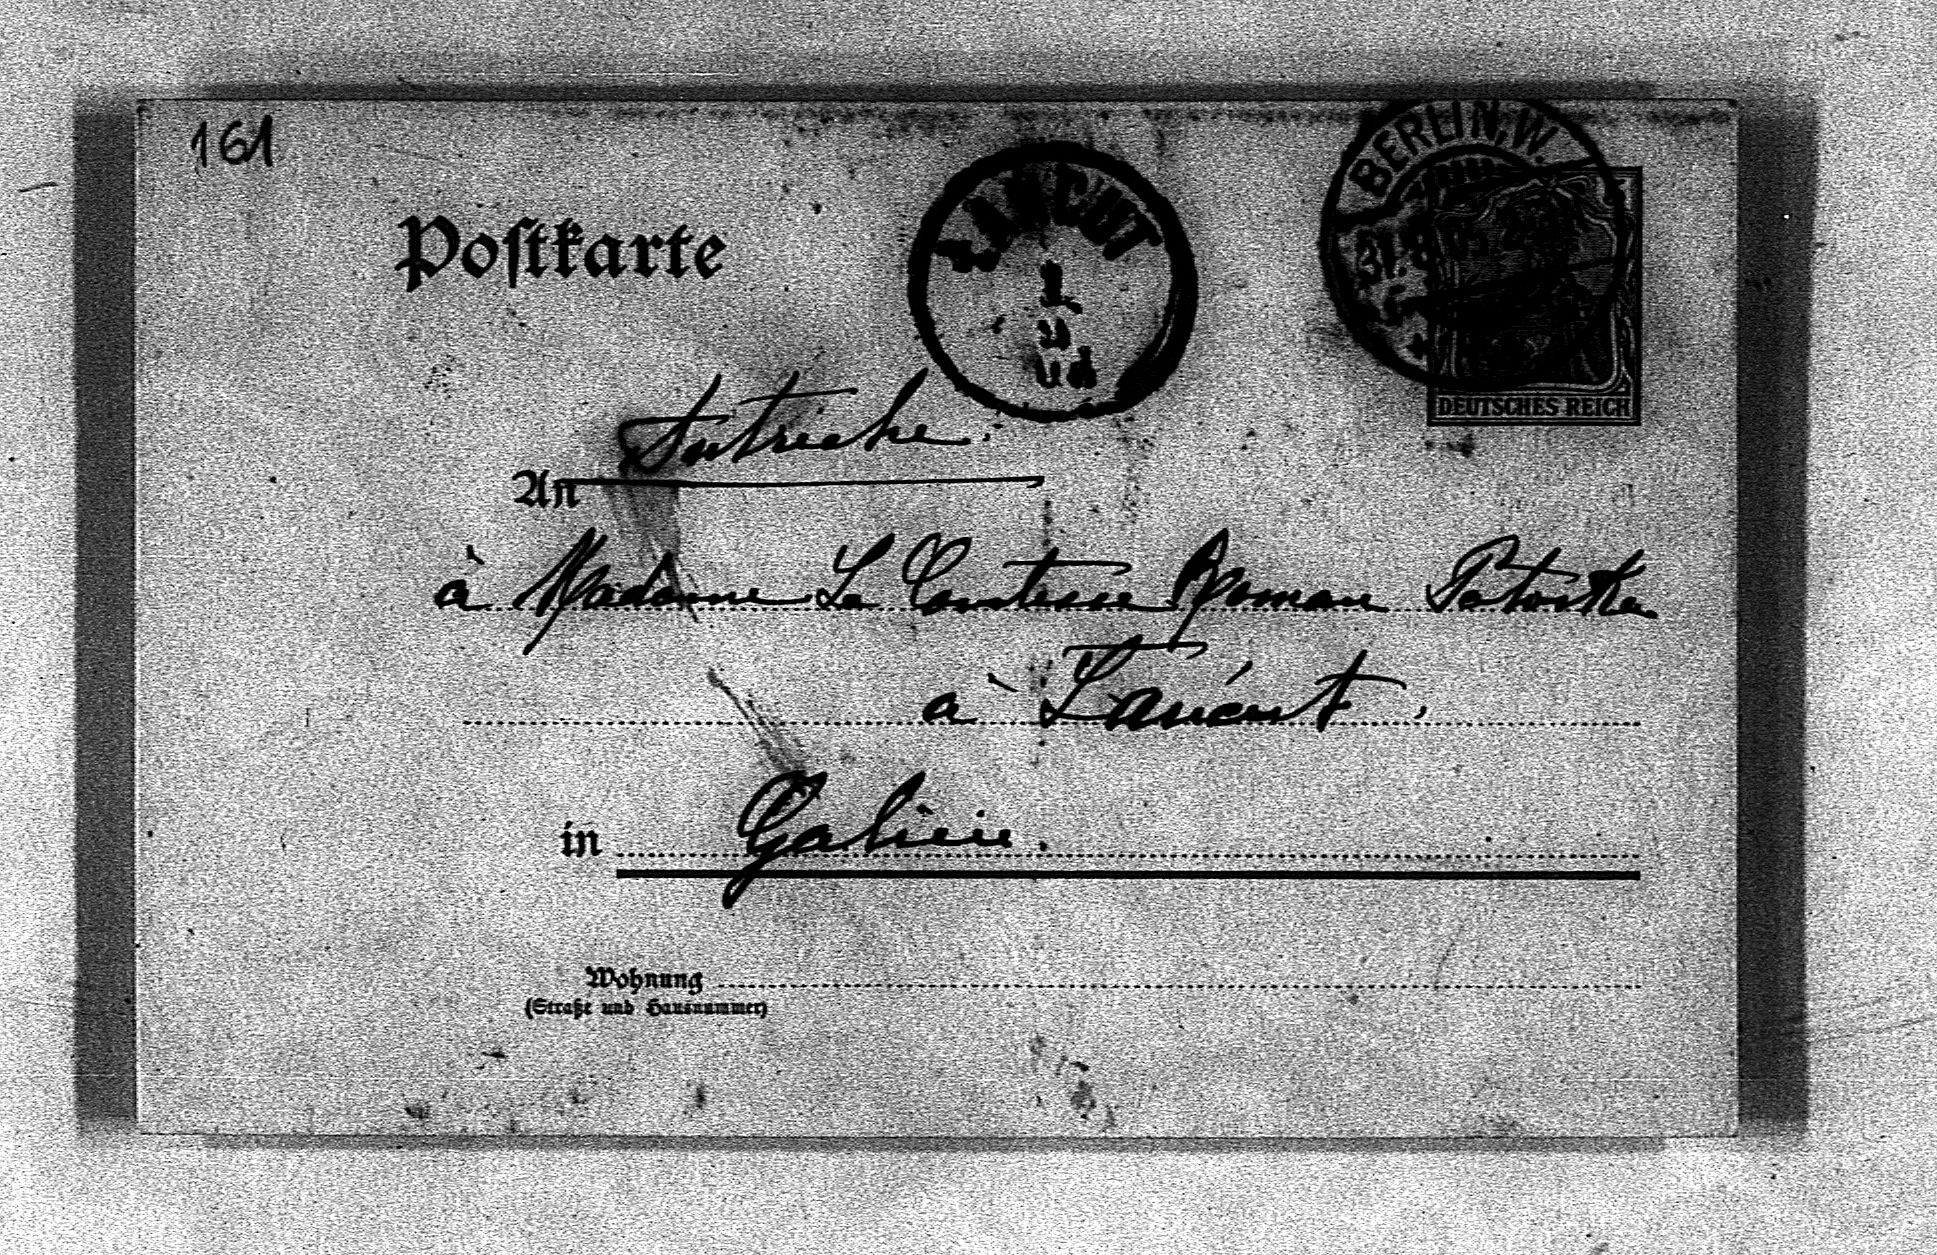 161
Postkarte
ŁAŃCUT
1
9
BERLIN, W.
31.8.03
DEUTSCHES REICH
Autriche.
An
à Madame La Comtesse Roman Potocka
à Łańcut.
in Galicie.
Wohnung
(Straße und Hausnummer)